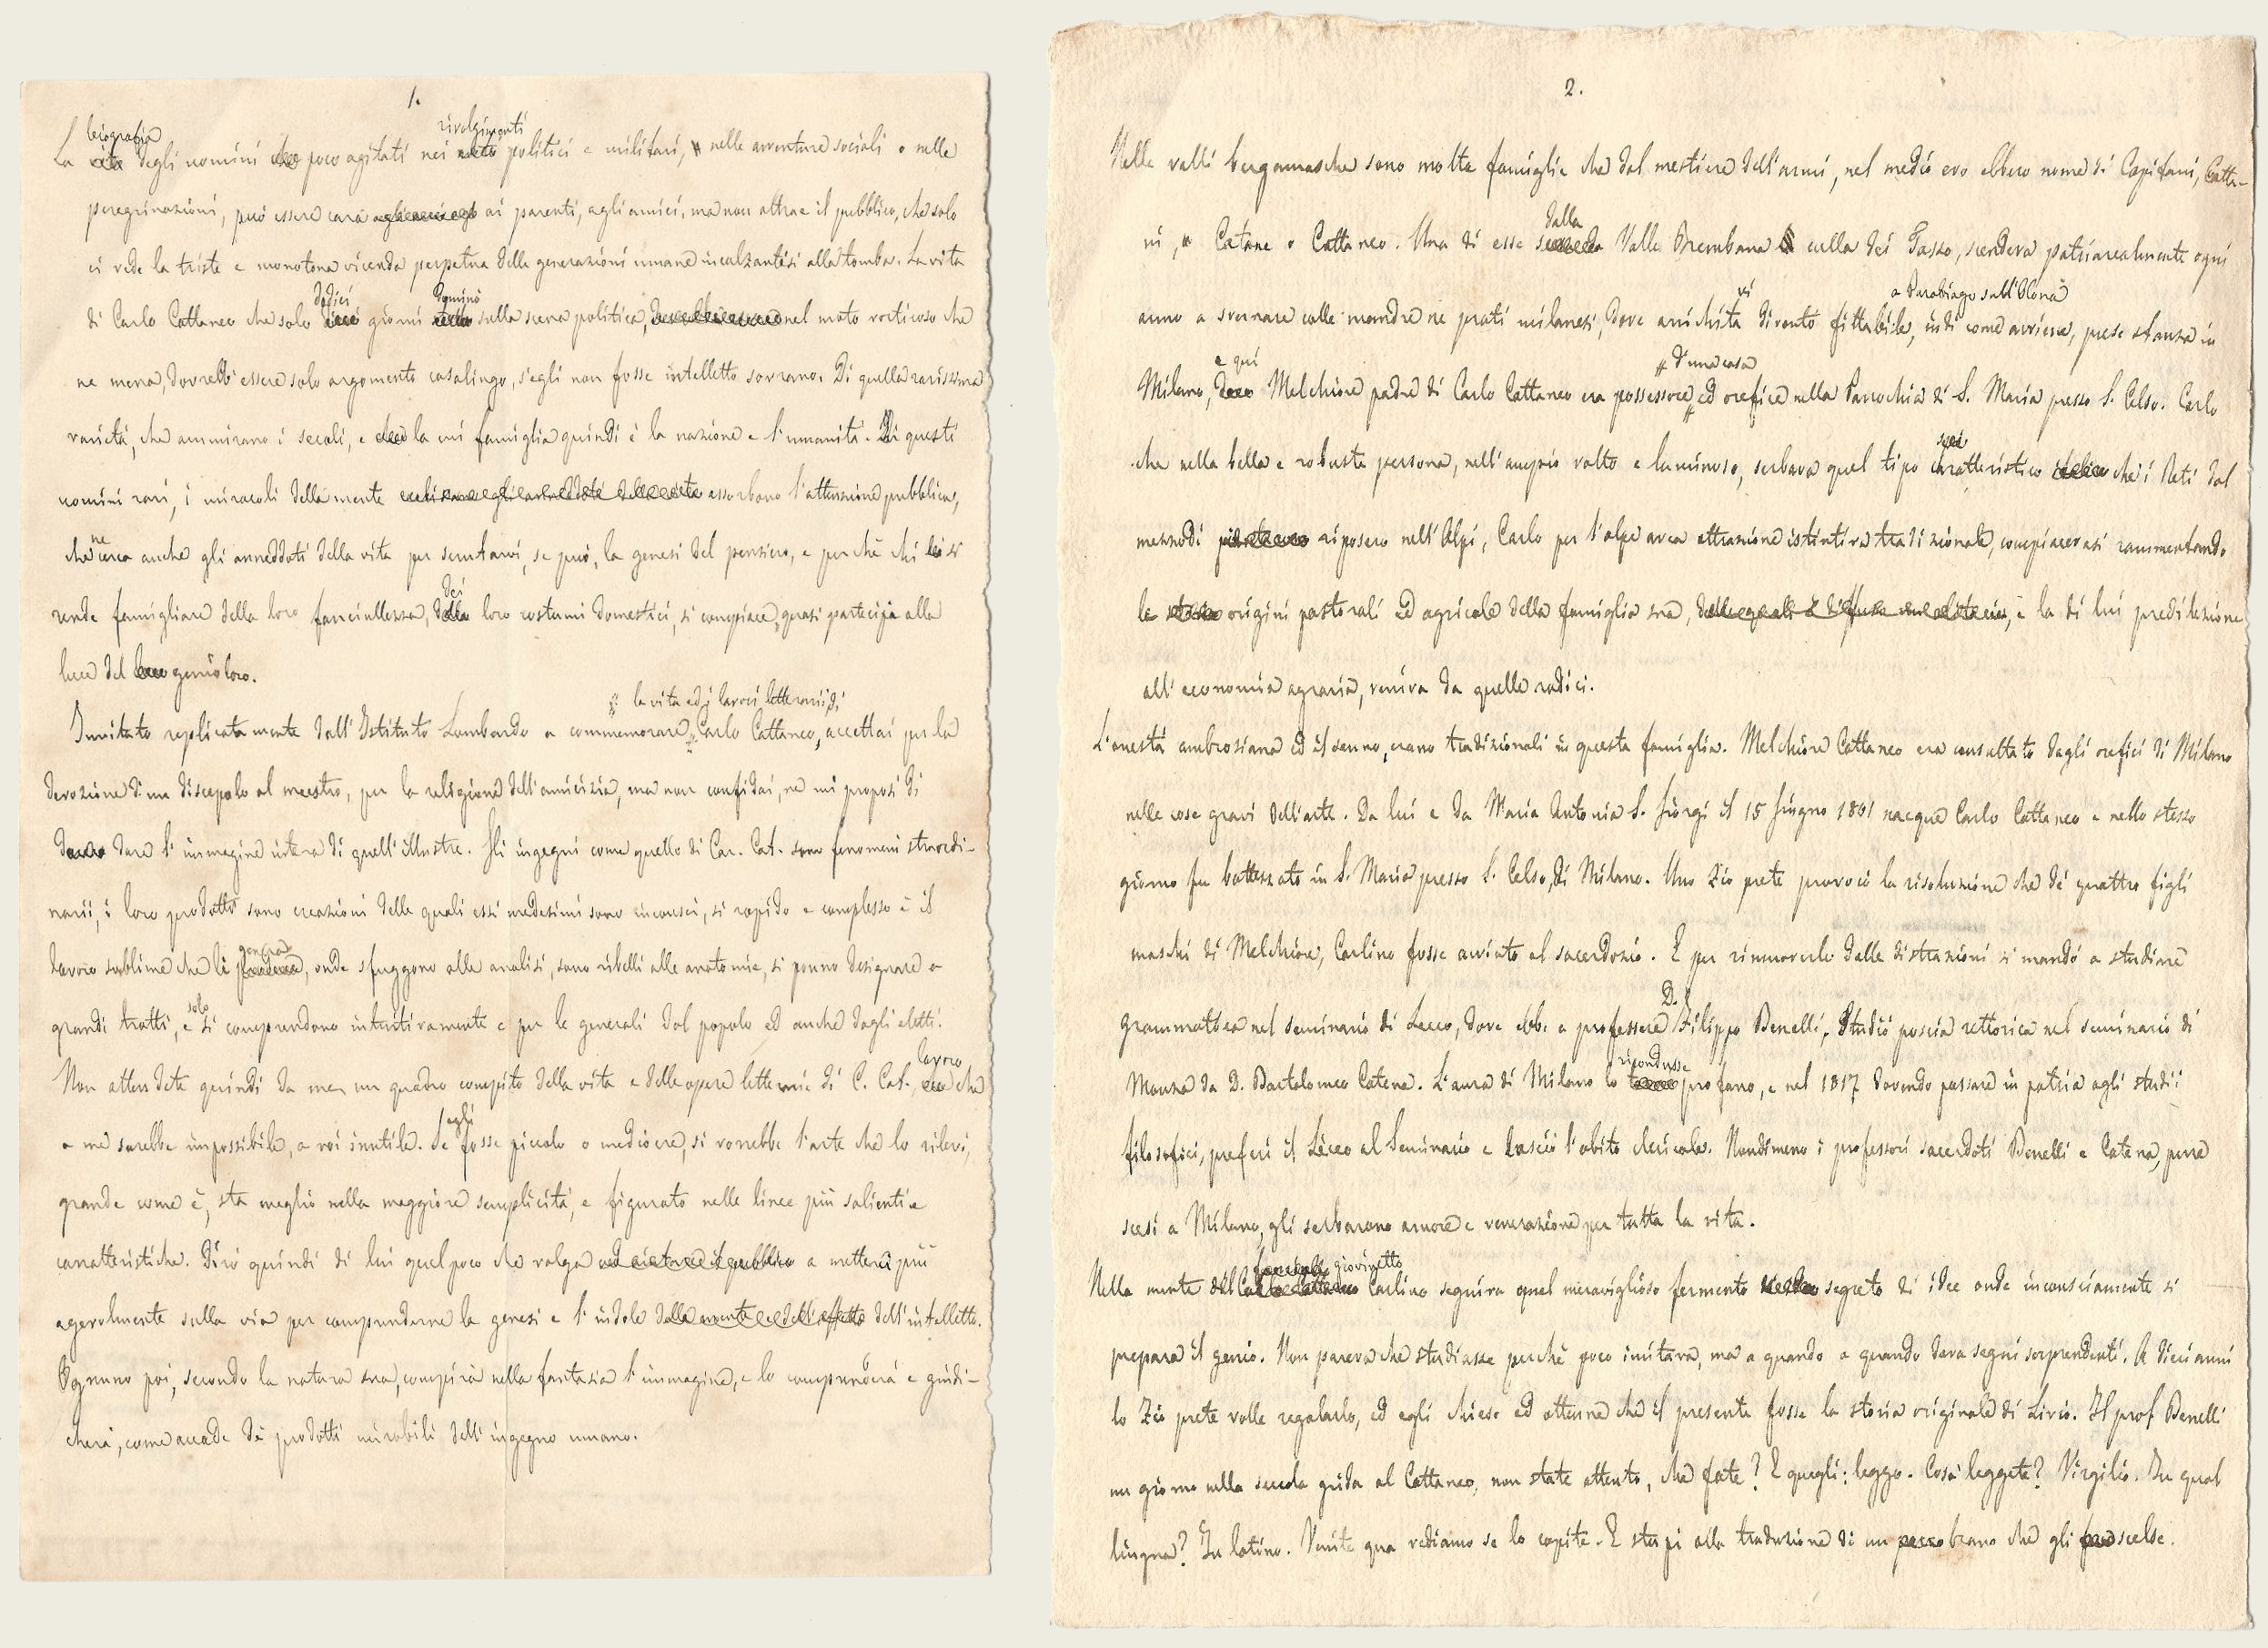 1.
biografia rivolgimenti
La vita degli uomini che poco agitati nei moti politici e militari, nelle avventure sociali o nelle
peregrinazioni, può essere cara ai parenti, agli amici, ma non attrae il pubblico, che solo
ci vede la triste e monotona vicenda perpetua delle generazioni umane incalzantisi alla tomba. La vita
dodici dominò
di Carlo Cattaneo che solo dieci giorni sulla scena politica, nel moto vorticoso che
ne mena, dovrebb'essere solo argomento casalingo, s'egli non fosse intelletto sovrano. Di quella rarissima
varietà, che ammirano i secoli, e la cui famiglia quindi è la nazione e l'umanità. Di questi
uomini rari, i miracoli della mente assorbono l'attenzione pubblica,
ne
che cerca anche gli anneddoti della vita per scrutarvi, se può, la genesi del pensiero, e perchè chi si
dei
rende famigliare della loro fanciullezza, della loro costumi domestici, si compiace, quasi partecipi alla
luce del genio loro.
# la vita ed i lavori letterarii di
Invitato replicatamente dall'Istituto Lombardo a commemorare # Carlo Cattaneo, accettai per la
devozione di un discepolo al maestro, per la religione dell'amicizia, ma non confidai, ne mi proposi di
dare l'immagine intera di quell'illustre. Gli ingegni come quello di Car. Cat. sono fenomeni straordi-
narii, i loro prodotti sono creazioni delle quali essi medesimi sono inconsci, si rapido e complesso è il
genera
lavoro sublime che li produce, onde sfuggono alle analisi, sono ribelli alle anatomie, si ponno disegnare a
solo
grandi tratti, e si comprendono intuitivamente e per le generali dal popolo ed anche dagli eletti.
lavoro
Non attendete quindi da me, un quadro compito della vita e delle opere letterarie di C. Cat., che
egli
a me sarebbe impossibile, a voi inutile. Se fosse piccolo o mediocre, si vorrebbe l'arte che lo rilevi,
grande come è, sta meglio nella maggiore semplicità, e figurato nelle linee più salienti e
caratteristiche. Dirò quindi di lui quel poco che valga ad eccitare il pubblico a metterci più
agevolmente sulla via per comprenderne la genesi e l'indole della mente e dell'affetto dell'intelletto.
Ognuno poi, secondo la natura sua, compirà nella fantasia l'immagine, e lo comprenderà e giudi-
cherà, come accade dè prodotti mirabili dell'ingegno umano.
2.
Nelle valli bergamasche sono molte famiglie che dal mestiere dell'armi, nel medio evo ebbero nome di Capitani, Catta-
dalla
ni, Catane o Cattaneo. Una di esse Valle Brembana culla dei Tasso, scendeva patriarcalmente ogni
vi a Parabiago sull'Olona
anno a svernare colle mandre ne prati milanesi, dove arrichita diventò fittabile, indi come avviene, prese stanza in
e qui # d'una casa
Milano, dove Melchiore padre di Carlo Cattaneo era possessore # ed orefice nella Parrochia di S. Maria presso S. Celso. Carlo
che nella bella e robusta persona, nell'ampio volto e luminoso, serbava quel tipo caratteristico che i Reti dal
mezzodì riposero nell'Alpi, Carlo per l'alpe avea attrazione istintiva tradizionale, compiacevasi rammentando
le storie origini pastorali ed agricole della famiglia sua, e la di lui predilezione
all'economia agraria, veniva da quelle radici.
L'onestà ambrosiana ed il senno, erano tradizionali in questa famiglia. Melchiore Cattaneo era consultato dagli orefici di Milano
nelle cose gravi dell'arte. Da lui e da Maria Antonia S. Giorgi il 15 Giugno 1801 nacque Carlo Cattaneo e nello stesso
giorno fu battezzato in S. Maria presso S. Celso, di Milano. Uno zio prete provocò la risoluzione che dè quattro figli
maschi di Melchiore, Carlino fosse avviato al sacerdozio. E per rimuoverlo dalle distrazioni si mandò a studiare
D.
grammatica nel seminario di Lecco, dove ebbe a professore Filippo Benelli. Studiò poscia rettorica nel seminario di
ricondusse
Monza da D. Bartolomeo Catena. L'aura di Milano lo profano, e nel 1817 dovendo passare in patria agli studii
filosofici, preferì il Liceo al Seminario e lasciò l'abito chericale. Nondimeno i professori sacerdoti Benelli e Catena, pure
scesi a Milano, gli serbarono amore e venerazione per tutta la vita.
fanciullo giovinetto
Nella mente del Carlo Cattaneo Carlino seguiva quel meraviglioso fermento segreto di idee onde inconsciamente si
prepara il genio. Non pareva che studiasse perchè poco imitava, ma a quando a quando dava segni sorprendenti. A dieci anni
lo zio prete volle regalarlo, ed egli chiese ed ottenne che il presente fosse la storia originale di Livio. Il prof Benelli
un giorno nella scuola grida al Cattaneo, non state attento, che fate? E quegli: leggo. Cosa leggete? Virgilio. In qual
lingua? In latino. Venite qua vediamo se lo capite. E stupì alla traduzione di un brano che gli scelse.